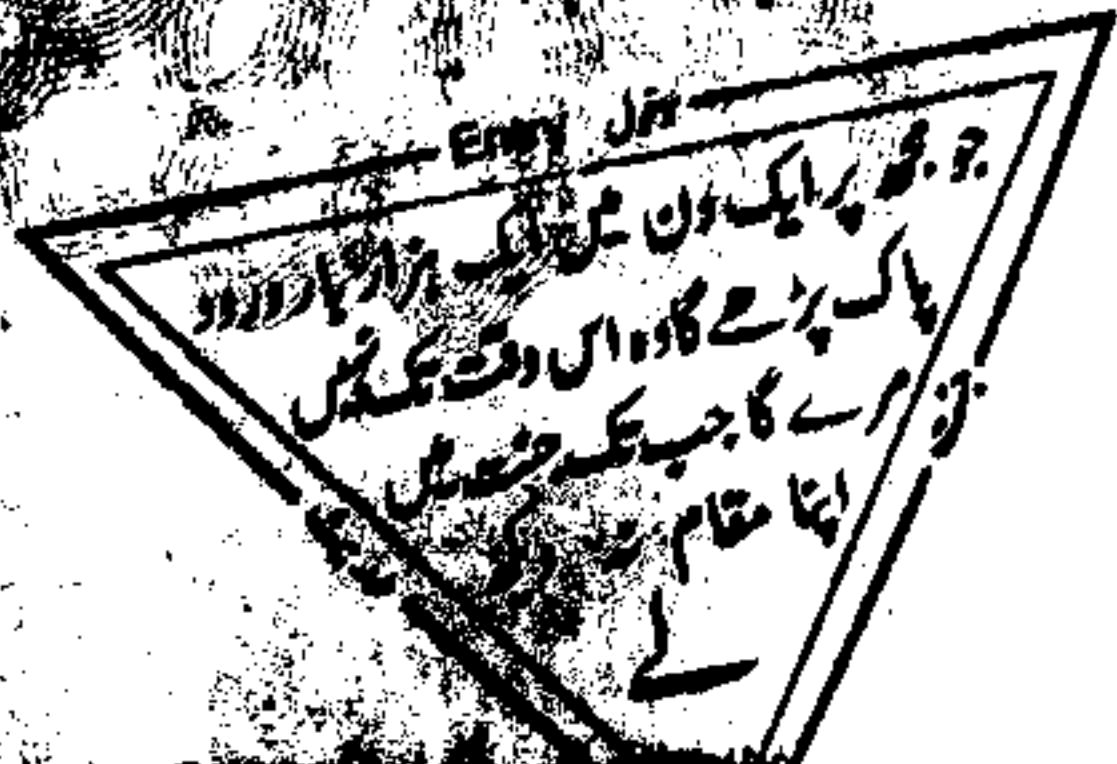 Entry
جو مجھ پر ایک دن میں ایک ہزار بار درود
پاک پڑھے گا وہ اس وقت تک نہیں
مرے گا جب تک جنت میں
اپنا مقام نہ دیکھ
لے